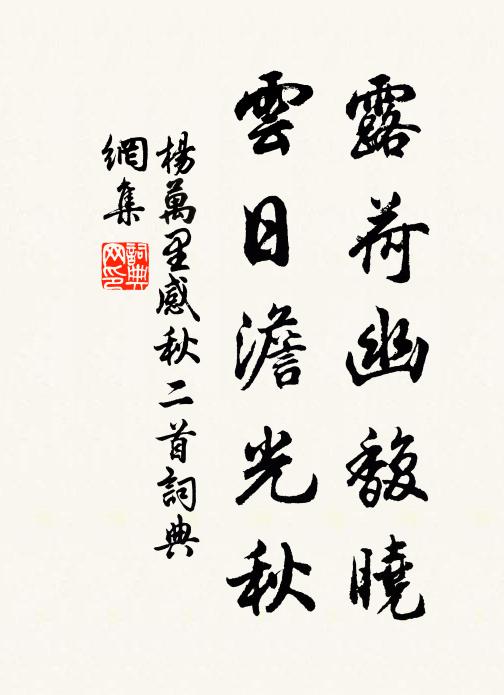 露荷幽馥曉
雲日澹光秋
楊萬里感秋二首詞典
網集
詞典网印